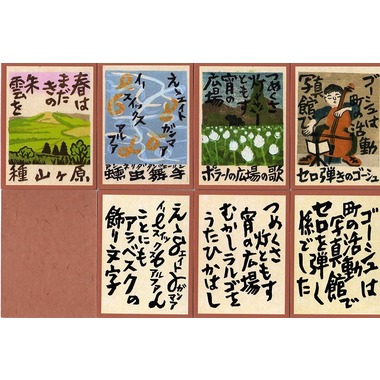 春は
まだきの
朱
雲を
種山ヶ原
えゝエイト
ガンマア
イー
スイックス
アルファ
蠕虫舞手
つめくさ
灯ともす
宵の
広場
ポラーノの広場の歌
ゴーシュは
町の活動
写真館で
セロ弾きのゴーシュ
ことにも
アラベスクの
飾り文字
つめくさ
灯ともす
宵の広場
むかしラルゴを
うたひかはし
ゴーシュは
町の活動
写真館で
セロを弾く
係でした